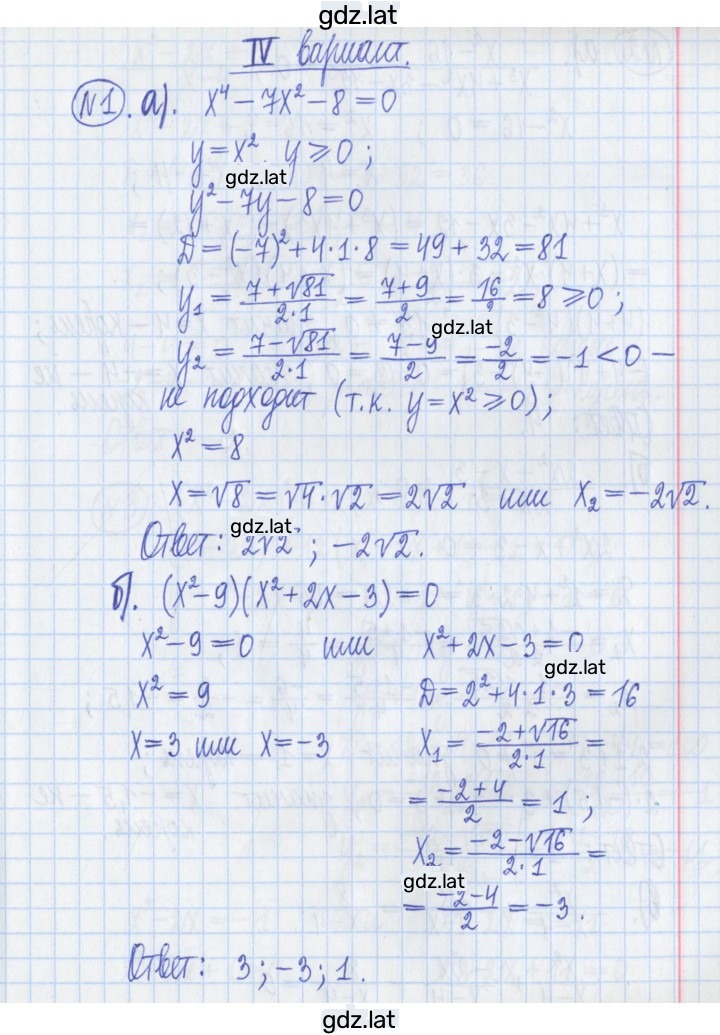 gdz.lat
IV вариант.
№1. а). x⁴ − 7x² − 8 = 0
y = x² y ⩾ 0;
gdz.lat
y² − 7y − 8 = 0
Д = (−7)² + 4·1·8 = 49 + 32 = 81
y₁ = (7+√81)/(2·1) = (7+9)/2 = 16/2 = 8 ⩾ 0;
gdz.lat
y₂ = (7−√81)/(2·1) = (7−9)/2 = −2/2 = −1 < 0 −
не подходит (т.к. y = x² ⩾ 0);
x² = 8
x = √8 = √4·√2 = 2√2 или x₂ = −2√2.
gdz.lat
Ответ: 2√2; −2√2.
б). (x²−9)(x²+2x−3) = 0
x² − 9 = 0 или x² + 2x − 3 = 0
gdz.lat
x² = 9 Д = 2² + 4·1·3 = 16
x = 3 или x = −3 x₁ = (−2+√16)/(2·1) =
= (−2+4)/2 = 1;
x₂ = (−2−√16)/(2·1) =
gdz.lat
= (−2−4)/2 = −3.
Ответ: 3; −3; 1.
gdz.lat